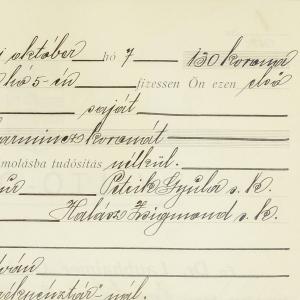 október hó 7 130 korona
hó 5-én fizessen Ön ezen első
saját
harmincz koronát
molásba tudósítás nélkül.
Petrik Gyula s. k.
Halász Zsigmond s. k.
nál.